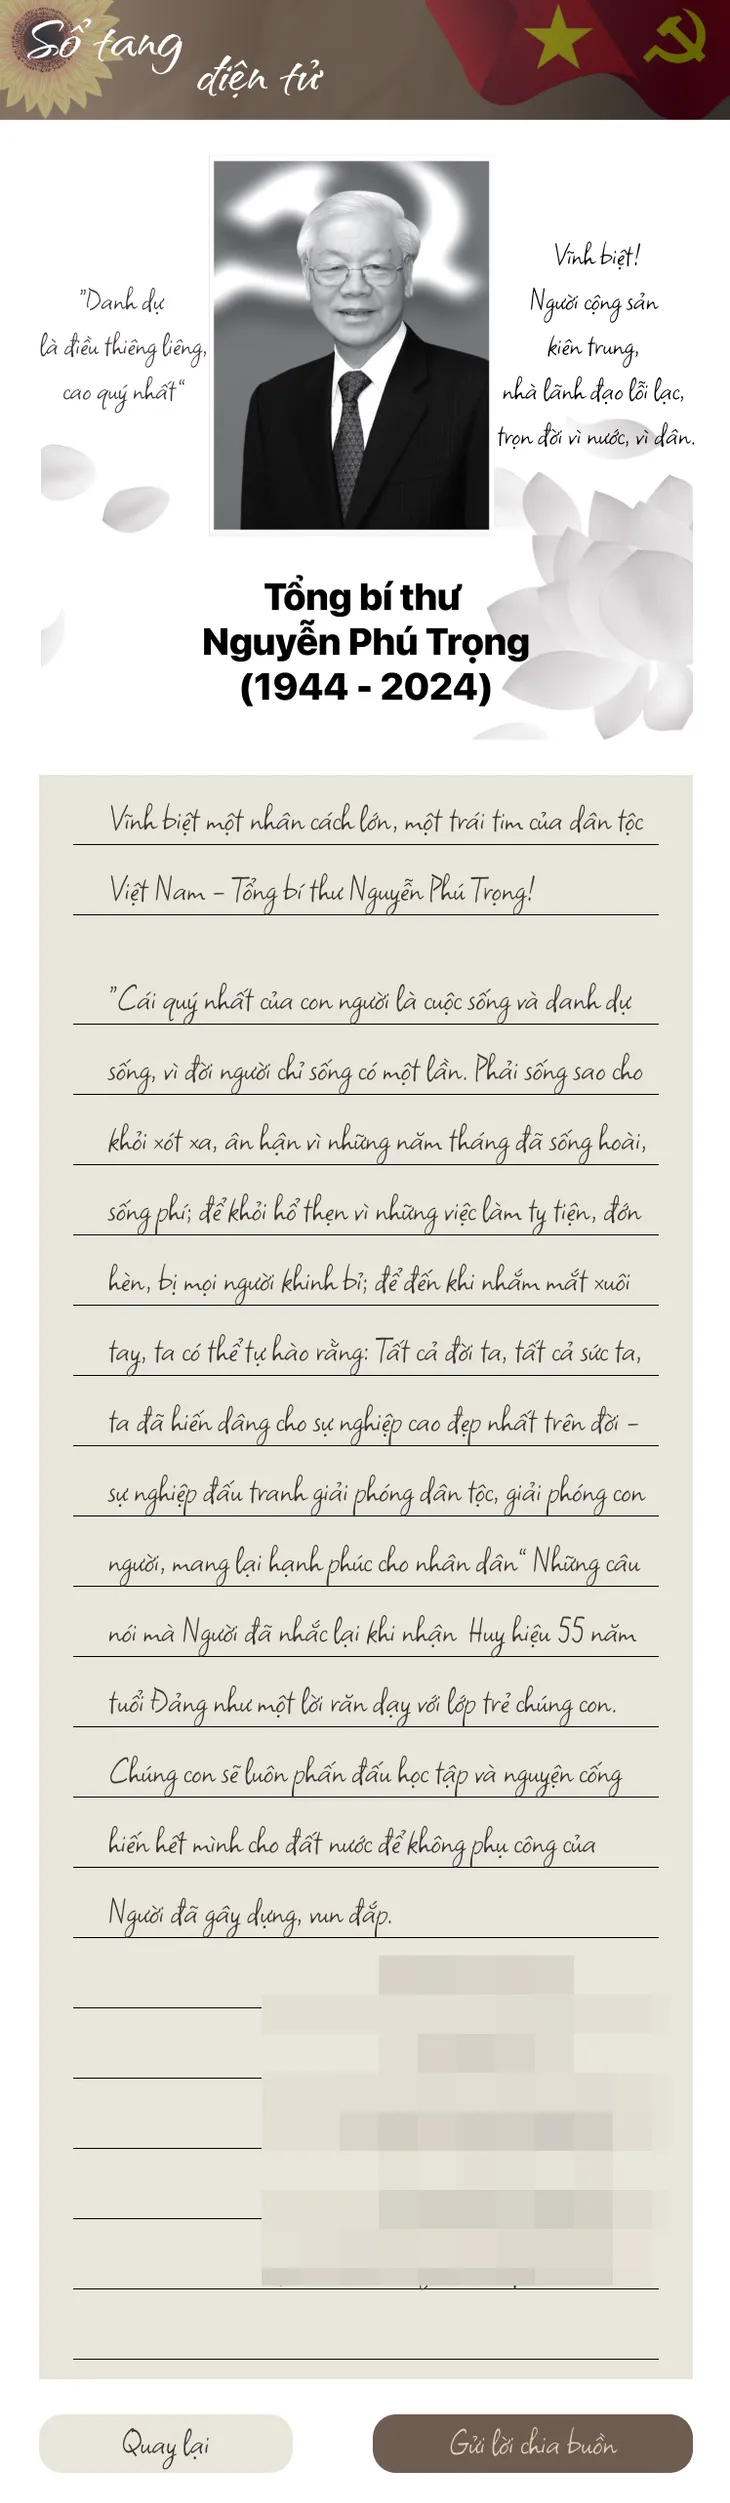 Sổ tang
điện tử
"Danh dự
là điều thiêng liêng,
cao quý nhất"
Vĩnh biệt!
Người cộng sản
kiên trung,
nhà lãnh đạo lỗi lạc,
trọn đời vì nước, vì dân.
Tổng bí thư
Nguyễn Phú Trọng
(1944 - 2024)
Vĩnh biệt một nhân cách lớn, một trái tim của dân tộc
Việt Nam - Tổng bí thư Nguyễn Phú Trọng!
"Cái quý nhất của con người là cuộc sống và danh dự
sống, vì đời người chỉ sống có một lần. Phải sống sao cho
khỏi xót xa, ân hận vì những năm tháng đã sống hoài,
sống phí; để khỏi hổ thẹn vì những việc làm ty tiện, đớn
hèn, bị mọi người khinh bỉ; để đến khi nhắm mắt xuôi
tay, ta có thể tự hào rằng: Tất cả đời ta, tất cả sức ta,
ta đã hiến dâng cho sự nghiệp cao đẹp nhất trên đời -
sự nghiệp đấu tranh giải phóng dân tộc, giải phóng con
người, mang lại hạnh phúc cho nhân dân" Những câu
nói mà Người đã nhắc lại khi nhận Huy hiệu 55 năm
tuổi Đảng như một lời răn dạy với lớp trẻ chúng con.
Chúng con sẽ luôn phấn đấu học tập và nguyện cống
hiến hết mình cho đất nước để không phụ công của
Người đã gây dựng, vun đắp.
Quay lại
Gửi lời chia buồn